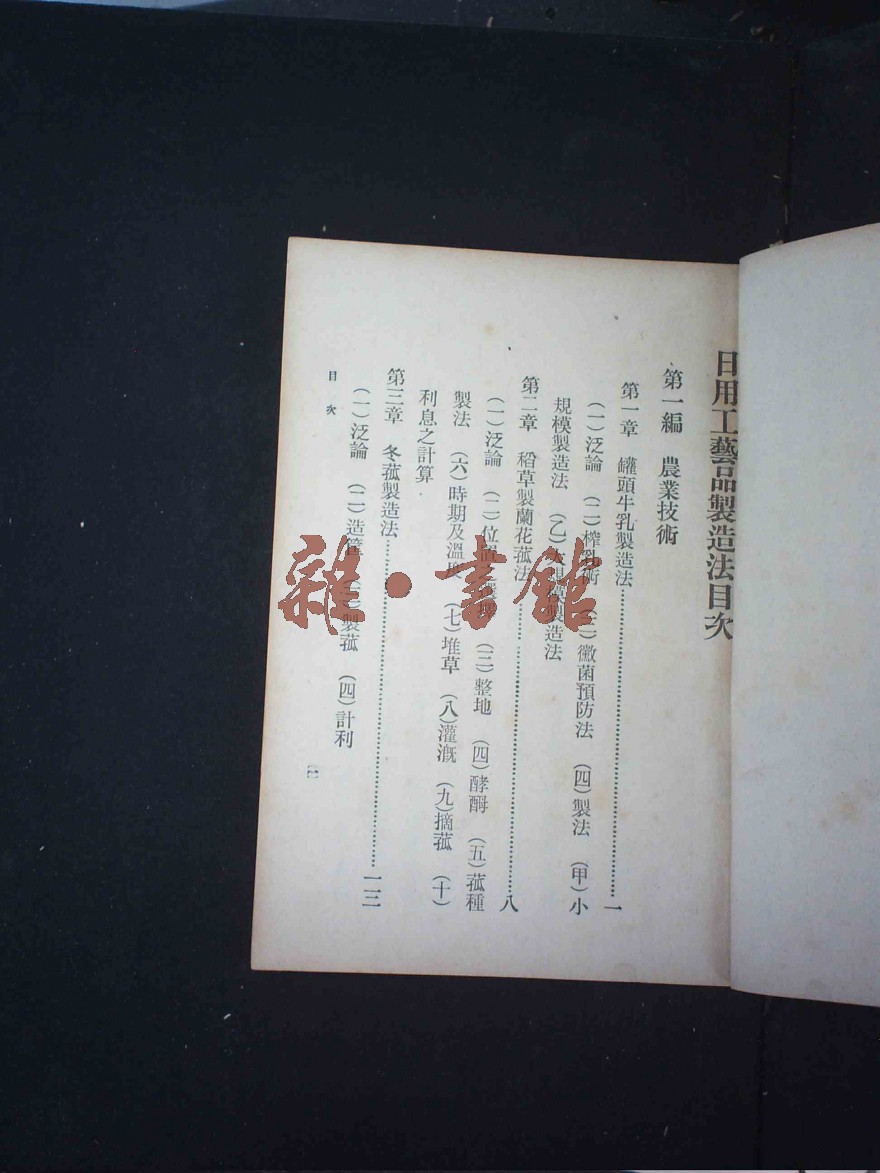 日用工藝品製造法目次
第一編 農業技術
第一章 罐頭牛乳製造法 一
(一)泛論 (二)榨乳術 (三)黴菌預防法 (四)製法 (甲)小
規模製造法 (乙)大規模製造法
第二章 稻草製蘭花菰法 八
(一)泛論 (二)位置 (三)整地 (四)酵酶 (五)菰種
製法 (六)時期及溫度 (七)堆草 (八)灌漑 (九)摘菰 (十)
利息之計算
第三章 冬菰製造法
(一)泛論 (二)造筐 (三)製菰 (四)計利
目次
雜·書館